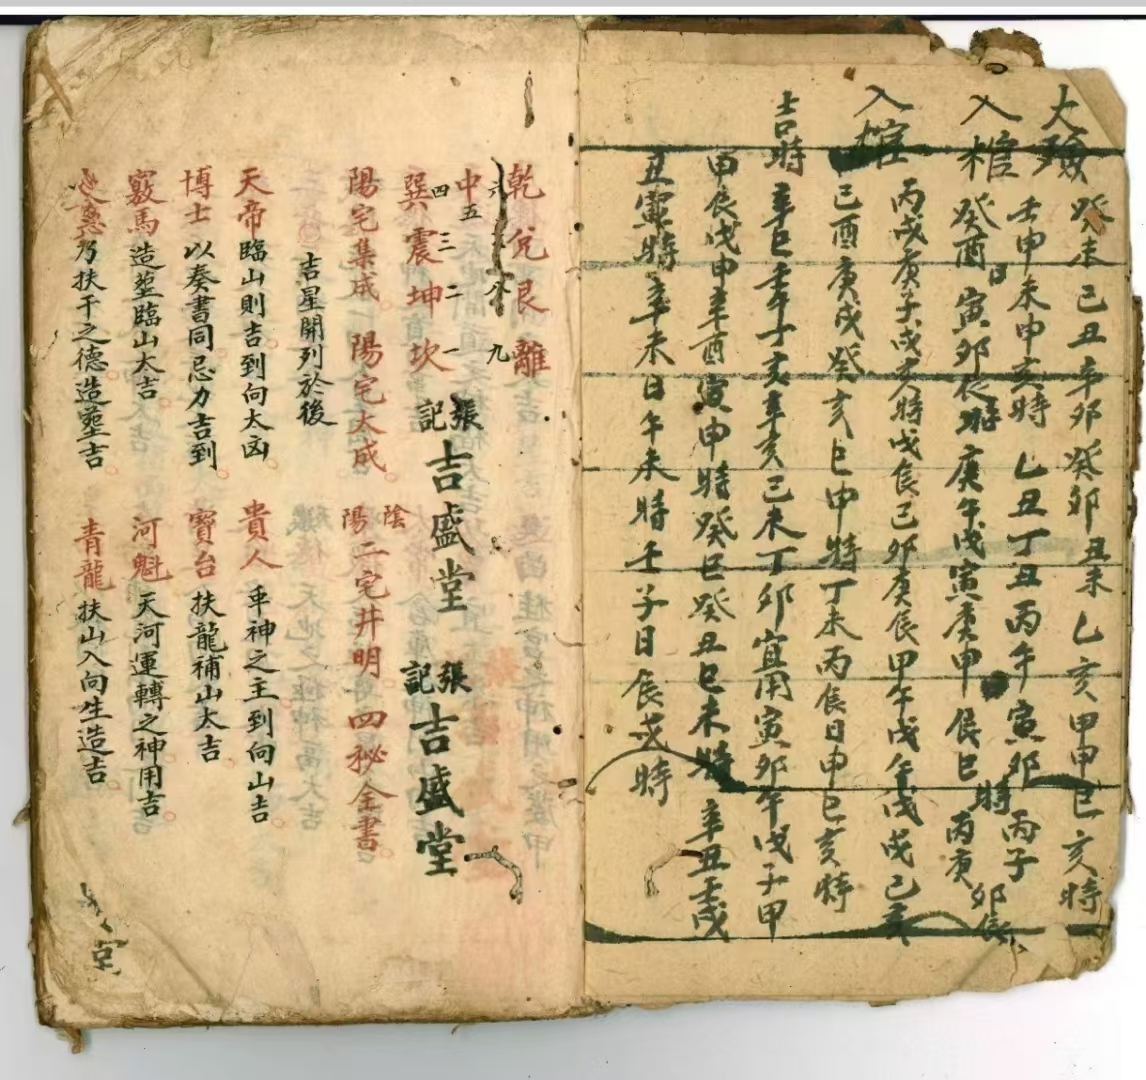 大殮
入棺
入棺
吉時
癸未己丑辛卯癸卯丑未乙亥甲申巳亥時
壬申未申亥時乙丑丁丑丙午寅卯時丙子卯辰
癸酉日寅卯辰時庚午戊寅庚申辰巳丙庚
丙戌庚子戌亥時戊辰己卯庚辰甲午戊午戊戌己亥
己酉庚戌癸亥巳申時丁未丙辰日申巳亥時
辛巳壬午丁亥辛亥己未丁卯宜用寅卯午戊子甲
甲辰戊申辛酉寅申時癸巳癸丑巳未時辛丑壬戌
丑寅時辛未日午未時壬子日辰戌時
乾兌艮離
六 八 九
中巽震坤坎
五四三二一
張記吉盛堂 張記吉盛堂
陽宅集成 陽宅大成 陰陽二宅井明 四秘全書
吉星開列於後
天帝臨山則吉到向大凶 貴人車神之主到向山吉
博士以奏書同忌力吉到 寶台扶龍補山大吉
竅馬造塟臨山大吉 河魁天河運轉之神用吉
乃扶干之德造塟吉 青龍扶山入向生造吉
堂